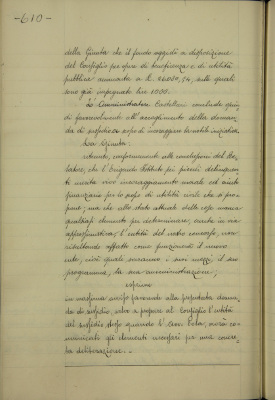 -610-
della Giunta che il fondo oggidì a disposizione
del Consiglio per opere di beneficenza e di utilità
pubblica ammonta a L. 26080,54, sulle quali
sono già impegnate lire 1000.
L'Amministratore Castellani conclude quindi
di favorevolmente all'accoglimento della domanda
da di sussidio a scopo di incoraggiare la nobile iniziativa.
La Giunta:
ritenuto, conformemente alle conclusioni del Relatore,
che l'erigendo Istituto pei piccoli delinquenti
merita vivo incoraggiamento morale ed aiuto
finanziario per lo scopo di utilità civile che si propone;
ma che allo stato attuale delle cose manca
qualsiasi elemento per determinare, anche in via
approssimativa, l'entità del nostro concorso, non
risultando affatto come funzionerà il nuovo
ente, cioè quali saranno i suoi mezzi, il suo
programma, la sua amministrazione;
esprime
in massima avviso favorevole alla domanda
di sussidio, salvo a proporre al Consiglio l'entità
del sussidio stesso quando l'Avv. sarà comunicati
gli elementi necessari per una concreta
deliberazione.